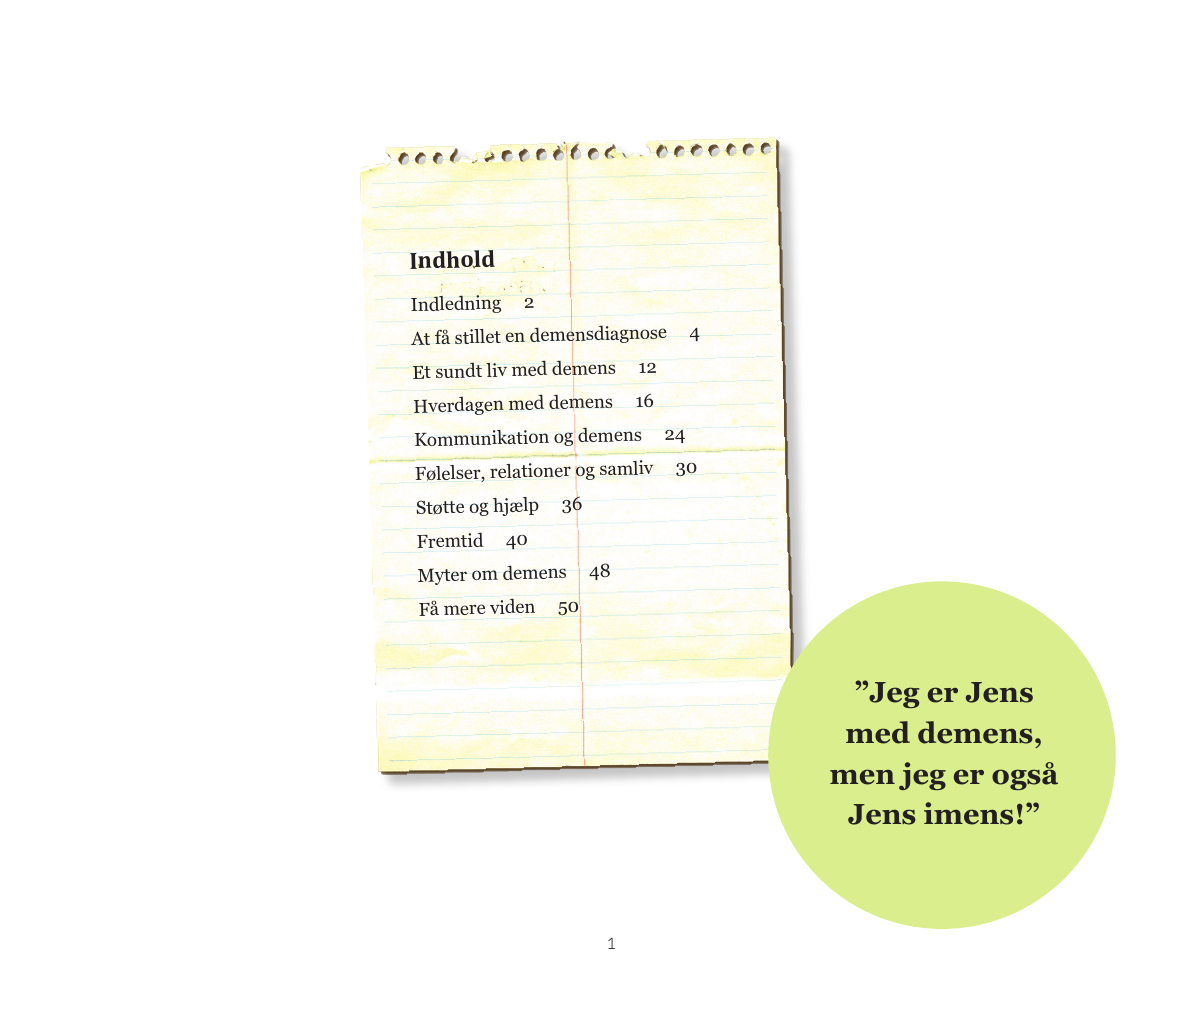 Indhold
Indledning 2
At få stillet en demensdiagnose 4
Et sundt liv med demens 12
Hverdagen med demens 16
Kommunikation og demens 24
Følelser, relationer og samliv 30
Støtte og hjælp 36
Fremtid 40
Myter om demens 48
Få mere viden 50
”Jeg er Jens
med demens,
men jeg er også
Jens imens!”
1